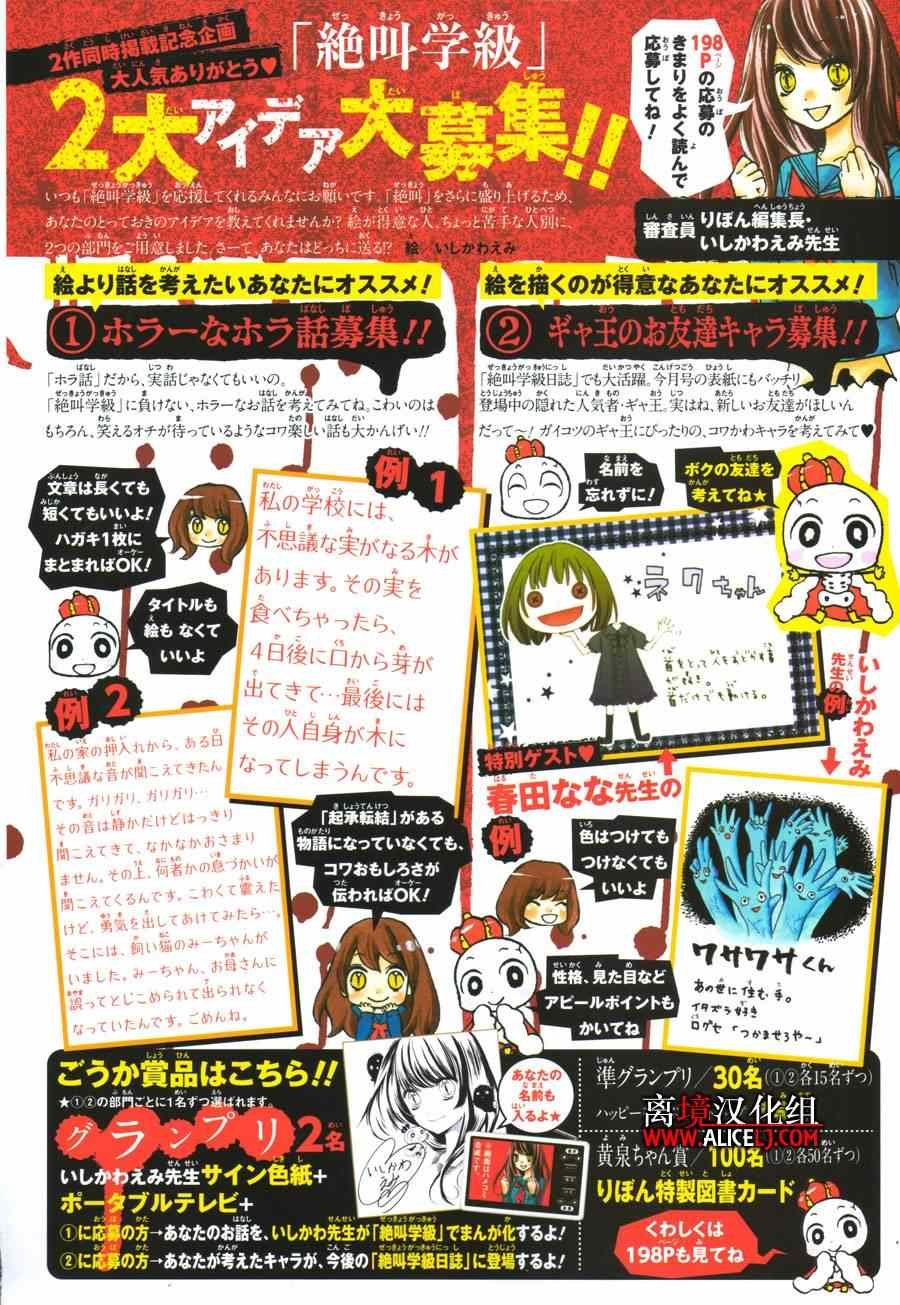 2作同時掲載記念企画
大人気ありがとう♥
「絶叫学級」
2大アイデア大募集!!
198Pの応募の
きまりをよく読んで
応募してね!
審査員
りぼん編集長・
いしかわえみ先生
いつも「絶叫学級」を応援してくれるみんなにお願いです。「絶叫」をさらに盛り上げるため、
あなたのとっておきのアイデアを教えてくれませんか? 絵が得意な人、ちょっと苦手な人別に、
2つの部門をご用意しました。さーて、あなたはどっちに送る!? 絵/いしかわえみ
絵より話を考えたいあなたにオススメ!
①ホラーなホラ話募集!!
「ホラ話」だから、実話じゃなくてもいいの。
「絶叫学級」に負けない、ホラーなお話を考えてみてね。こわいのは
もちろん、笑えるオチが待っているようなコワ楽しい話も大かんげい!!
文章は長くても
短くてもいいよ!
ハガキ1枚に
まとまればOK!
タイトルも
絵も なくて
いいよ
例1
私の学校には、
不思議な実がなる木が
あります。その実を
食べちゃったら、
4日後に口から芽が
出てきて…最後には
その人自身が木に
なってしまうんです。
例2
私の家の押入れから、ある日
不思議な音が聞こえてきたん
です。ガリガリ、ガリガリ…
その音は静かだけどはっきり
聞こえてきて、なかなかおさまり
ません。その上、何者かの息づかいが
聞こえてくるんです。こわくて震えた
けど、勇気を出してあけてみたら…。
そこには、飼い猫のみーちゃんが
いました。みーちゃん、お母さんに
誤ってとじこめられて出られなく
なっていたんです。ごめんね。
「起承転結」がある
物語になっていなくても、
コワおもしろさが
伝わればOK!
絵を描くのが得意なあなたにオススメ!
②ギャ王のお友達キャラ募集!!
「絶叫学級日誌」でも大活躍。今月号の表紙にもバッチリ
登場中の隠れた人気者・ギャ王。実はね、新しいお友達がほしいん
だって〜! ガイコツのギャ王にぴったりの、コワかわキャラを考えてみて♥
名前を
忘れずに!
ボクの友達を
考えてね★
ネクちゃん
首をとって人をおどかす事
が好き。
首だけでも動ける。
特別ゲスト♥
春田なな先生の
例
いしかわえみ
先生の例
色はつけても
つけなくても
いいよ
性格、見た目など
アピールポイントも
かいてね
ワサワサくん
あの世に住む手。
イタズラ好き
ログセ「つかませろや〜」
ごうか賞品はこちら!!
★①②の部門ごとに1名ずつ選ばれます。
グランプリ2名
いしかわえみ先生サイン色紙+
ポータブルテレビ+
①に応募の方→あなたのお話を、いしかわ先生が「絶叫学級」でまんが化するよ!
②に応募の方→あなたが考えたキャラが、今後の「絶叫学級日誌」に登場するよ!
あなたの
名前も
入るよ★
いしかわ
えみ
画面はハメコミ
合成です。
準グランプリ/30名(①②各15名ずつ)
ハッピー
离境汉化组
WWW.ALICELJ.COM
黄泉ちゃん賞/100名(①②各50名ずつ)
りぼん特製図書カード
くわしくは
198Pも見てね